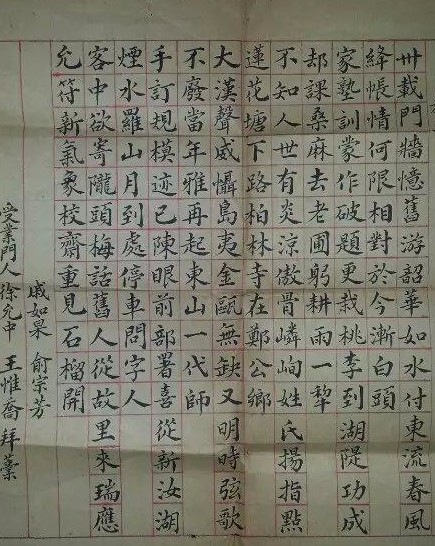 卅載門牆憶舊游韶華如水付東流春風
絳帳情何限相對於今漸白頭
家塾訓蒙作破題更栽桃李到湖隄功成
却課桑麻去老圃躬耕雨一犂
不知人世有炎涼傲骨嶙峋姓氏揚指點
蓮花塘下路柏林寺在鄭公鄉
大漢聲威懾島夷金甌無缺又明時弦歌
不廢當年雅再起東山一代師
手訂規模迹已陳眼前部署喜從新汝湖
煙水羅山月到處停車問字人
客中欲寄隴頭梅話舊人從故里來瑞應
允符新氣象校齋重見石榴開
戚如果 俞宗芳
受業門人徐允中 王惟喬 拜藁